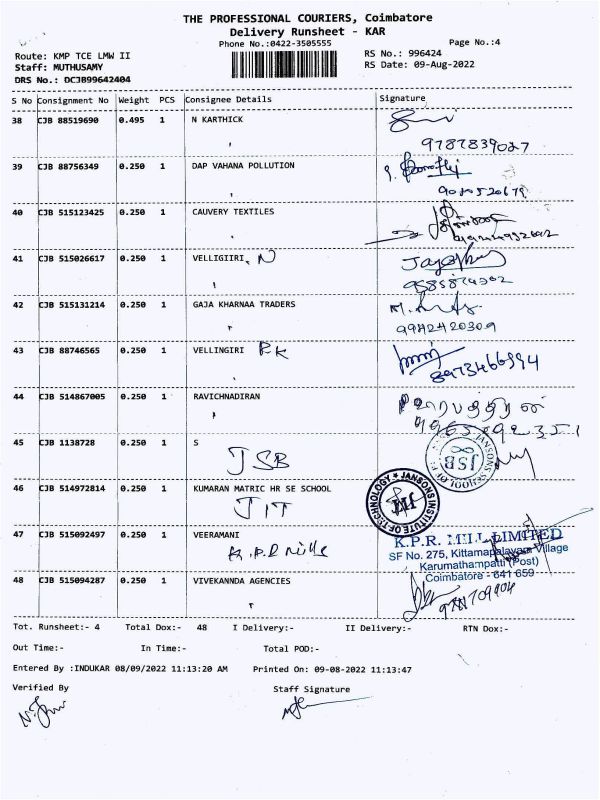 THE PROFESSIONAL COURIERS, Coimbatore
Delivery Runsheet - KAR
Phone No.:0422-3505555
Page No.:4
Route: KMP TCE LMW II
RS No.: 996424
Staff: MUTHUSAMY
RS Date: 09-Aug-2022
DRS No.: DCJB99642404
S No Consignment No Weight PCS Consignee Details Signature
38 CJB 88519690 0.495 1 N KARTHICK
9787839027
39 CJB 88756349 0.250 1 DAP VAHANA POLLUTION
40 CJB 515123425 0.250 1 CAUVERY TEXTILES
41 CJB 515026617 0.250 1 VELLIGIIRI, N
42 CJB 515131214 0.250 1 GAJA KHARNAA TRADERS
9942420309
43 CJB 88746565 0.250 1 VELLINGIRI RK
8973466994
44 CJB 514867005 0.250 1 RAVICHNADIRAN
45 CJB 1138728 0.250 1 S
JSB
JSB
46 CJB 514972814 0.250 1 KUMARAN MATRIC HR SE SCHOOL
JIT
JANSONS INSTITUTE OF TECHNOLOGY
JIT
47 CJB 515092497 0.250 1 VEERAMANI
K.P.R Mills
K.P.R. MILL LIMITED
SF No. 275, Kittampalayam Village
Karumathampatti (Post)
Coimbatore - 641 659
48 CJB 515094287 0.250 1 VIVEKANNDA AGENCIES
Tot. Runsheet:- 4 Total Dox:- 48 I Delivery:- II Delivery:- RTN Dox:-
Out Time:- In Time:- Total POD:-
Entered By :INDUKAR 08/09/2022 11:13:20 AM Printed On: 09-08-2022 11:13:47
Verified By Staff Signature